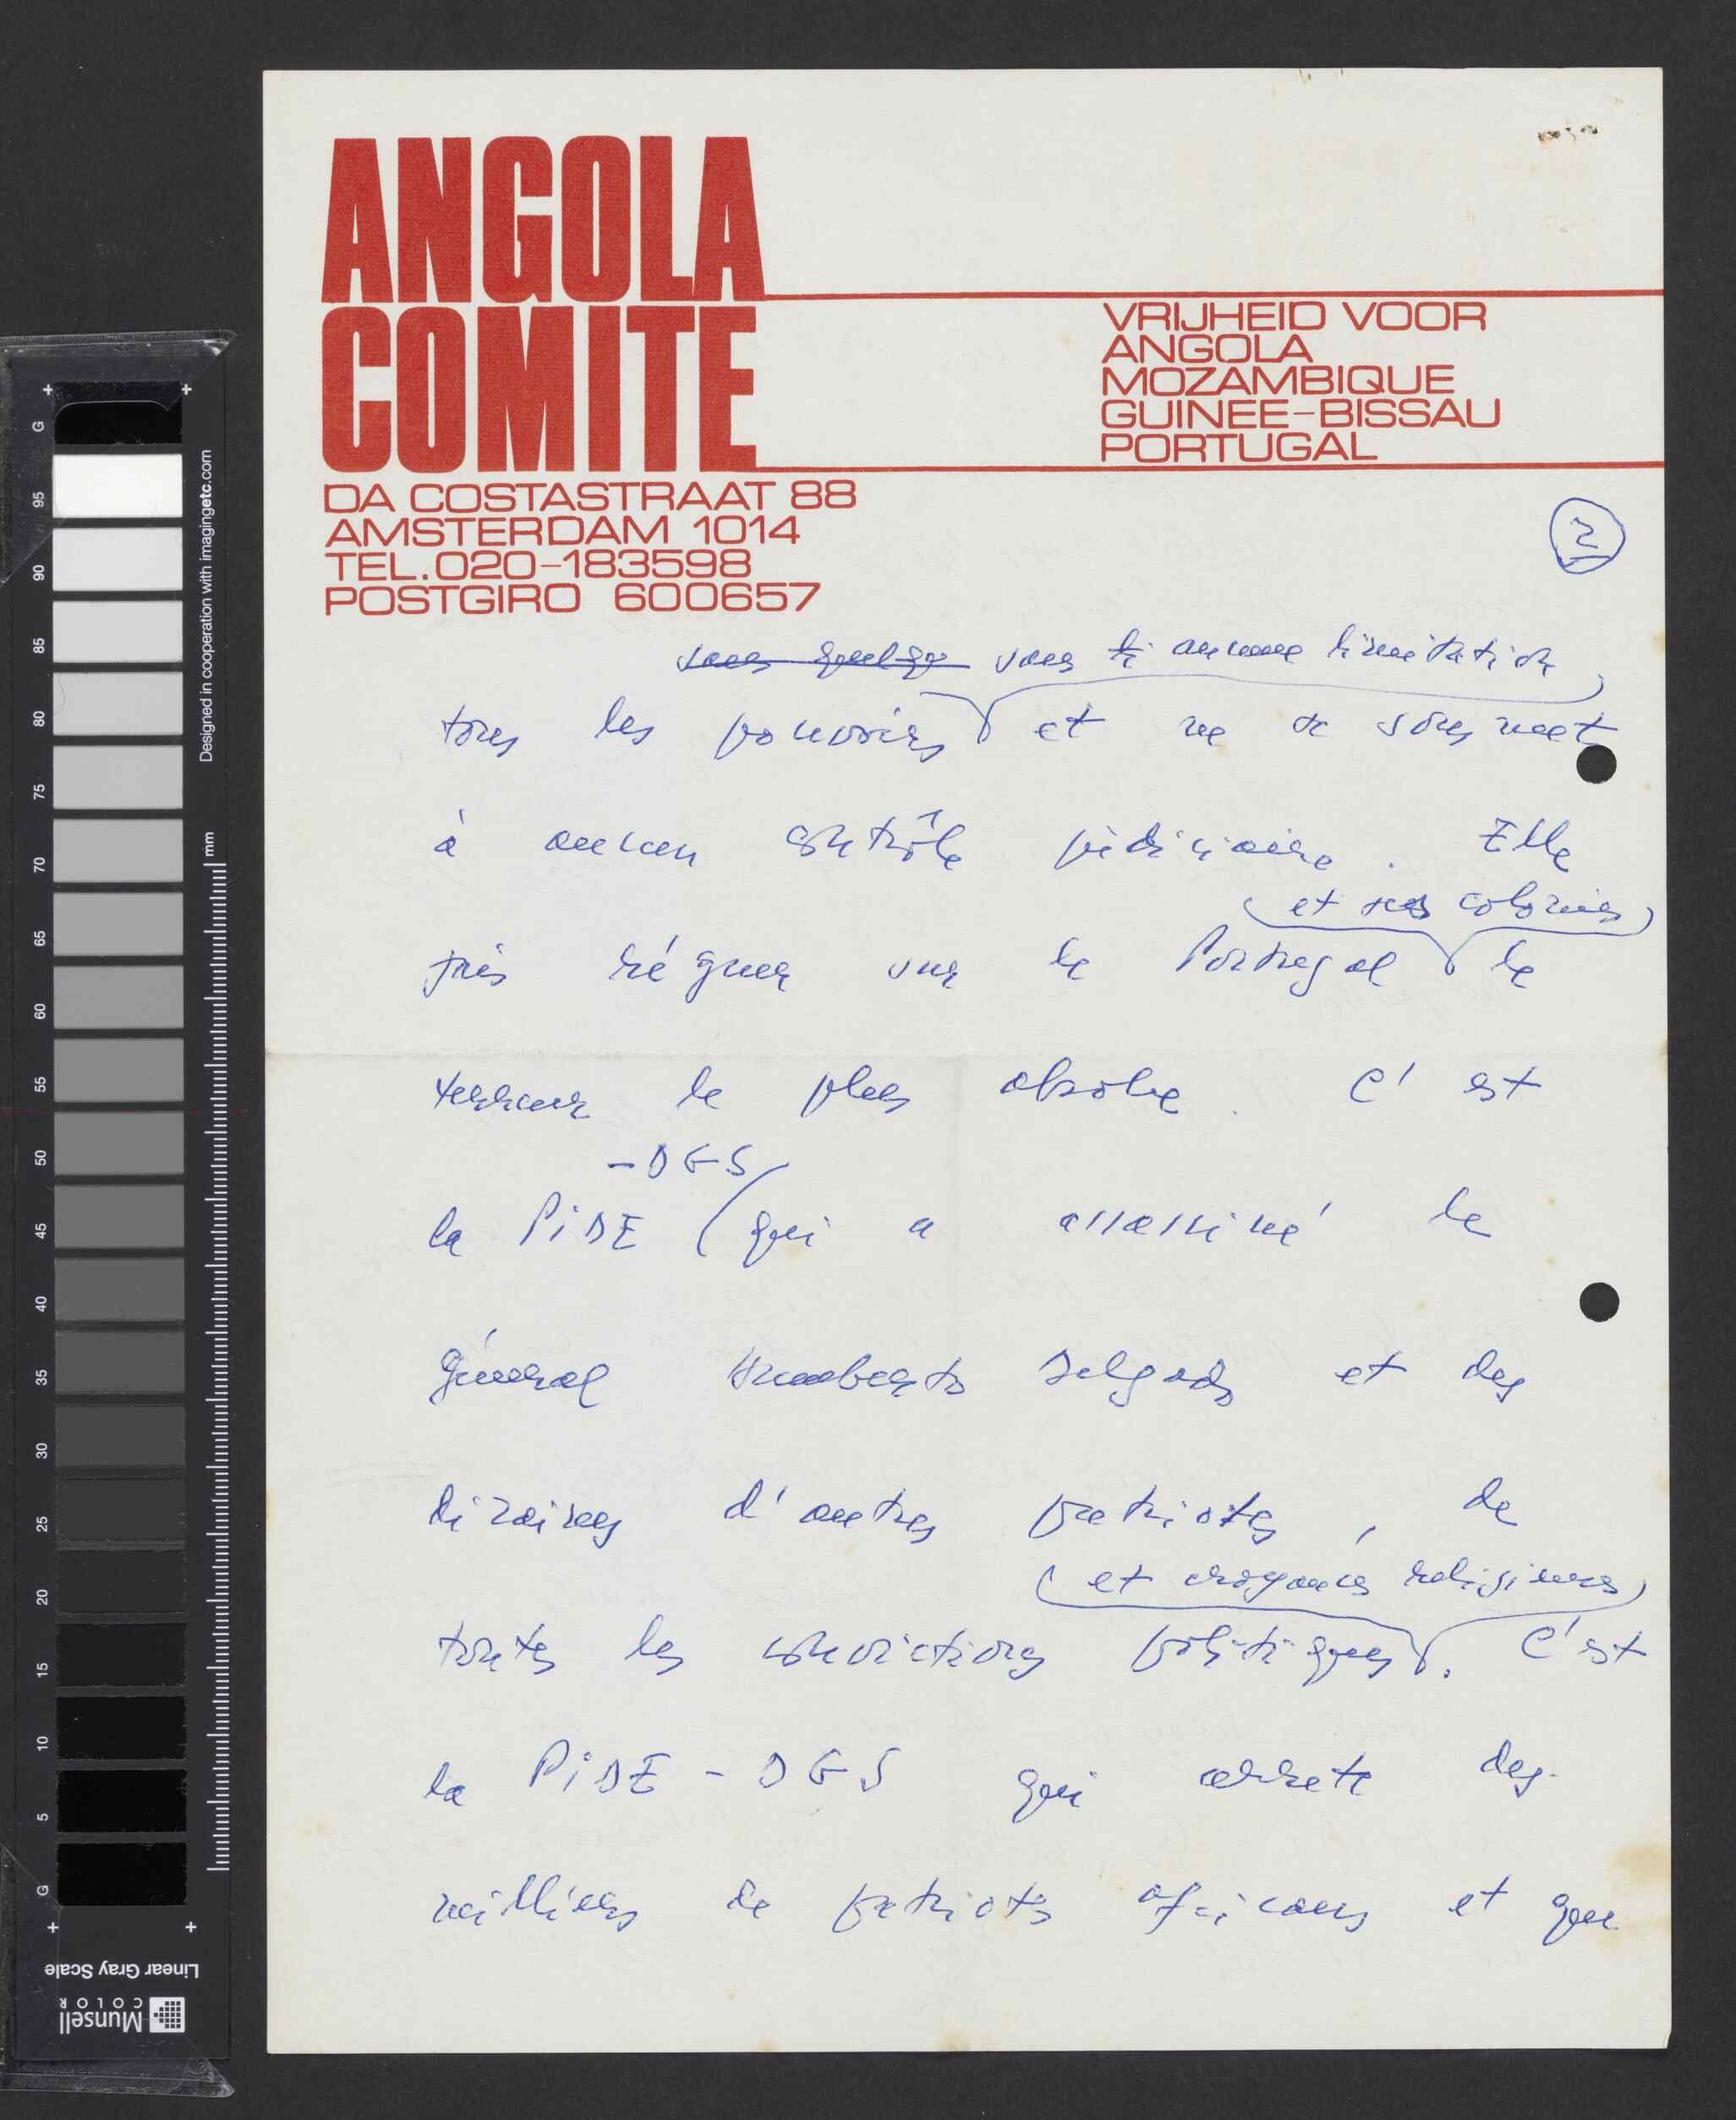 ANGOLA
COMITE
VRIJHEID VOOR
ANGOLA
MOZAMBIQUE
GUINEE-BISSAU
PORTUGAL
DA COSTASTRAAT 88
AMSTERDAM 1014
TEL.020-183598
POSTGIRO 600657
2
sans quelqu sans li aucune limitation
tous les pouvoirs et ne se soumet
à aucun contrôle judiciaire. Elle
et ses colonies
fais régner sur le Portugal le
terreur le plus absolue. C'est
-DGS
la PiDE (qui a assassiné le
général Humberto Delgado et des
dizaines d'autres patriotes, de
et croyances religieuses
toutes les convictions politiques. C'est
la PiDE-DGS qui arrete des
milliers de patriotes africans et que
Designed in cooperation with imagingetc.com
mm
G
95
90
85
80
75
70
65
60
55
50
45
40
35
30
25
20
15
10
5
G
Linear Gray Scale
Munsell
COLOR